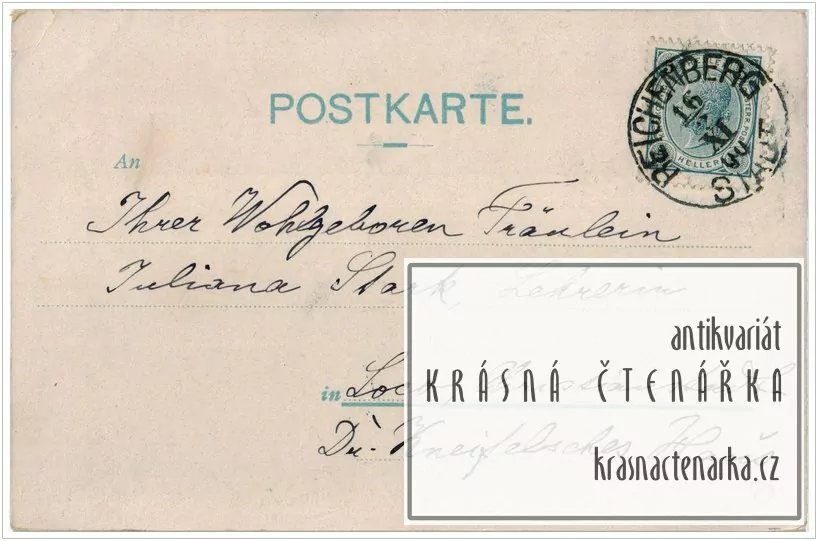 POSTKARTE.
REICHENBERG STADT
16
XI
HELLER
An
Ihrer Wohlgeboren Fräulein
Juliana Stark, Lehrerin
in
Dr. Kneifelsches
antikvariát
KRÁSNÁ ČTENÁŘKA
krasnactenarka.cz